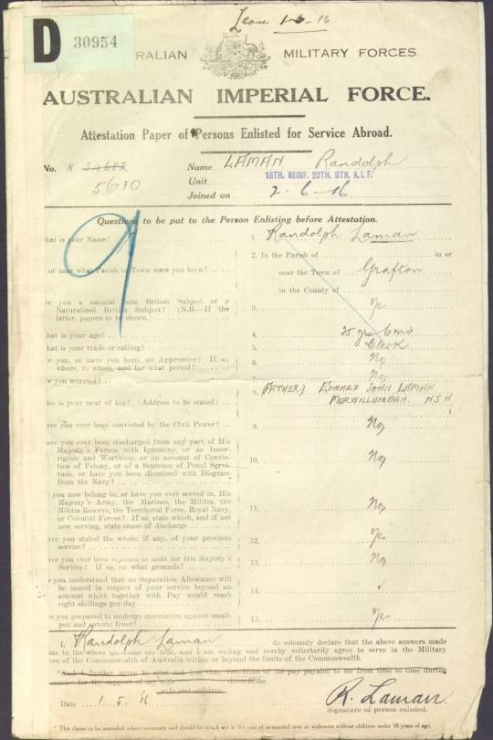 Leave 1-6-16
D 30954
AUSTRALIAN MILITARY FORCES.
AUSTRALIAN IMPERIAL FORCE.
Attestation Paper of Persons Enlisted for Service Abroad.
No. N 34682 Name LAMAN Randolph
5610 Unit 15TH. REINF. 20TH. BTN. A.I.F.
Joined on 2-6-16
Questions to be put to the Person Enlisting before Attestation.
hat is your Name? 1. Randolph Laman
2. In the Parish of in or
or near what Parish or Town were you born? near the Town of Grafton
in the County of
re you a natural born British Subject or a
Naturalized British Subject? (N.B.—If the 3. Yes
latter, papers to be shown.)
hat is your age? 4. 25 yrs 6 mo
hat is your trade or calling? 5. Clerk
e you, or have you been, an Apprentice? If so, 6. No
where, to whom, and for what period?
e you married? 7. No
8. (FATHER) EDWARD JOHN LAMAN
ho is your next of kin? (Address to be stated) MURWILLUMBAH. NSW
ave you ever been convicted by the Civil Power? 9. No
ave you ever been discharged from any part of His
Majesty's Forces, with Ignominy, or as Incor-
rigible and Worthless, or on account of Convic-
tion of Felony, or of a Sentence of Penal Servi- 10. No
tude, or have you been dismissed with Disgrace
from the Navy?
you now belong to, or have you ever served in, His
Majesty's Army, the Marines, the Militia, the
Militia Reserve, the Territorial Force, Royal Navy, 11. No
or Colonial Forces? If so, state which, and if not
now serving, state cause of discharge
ave you stated the whole, if any, of your previous 12. Yes
service?
ave you ever been rejected as unfit for His Majesty's 13. No
Service? If so, on what grounds?
you understand that no Separation Allowance will
be issued in respect of your service beyond an 14.
amount which together with Pay would reach
eight shillings per day
e you prepared to undergo inoculation against small- 15. Yes
pox and enteric fever?
I, Randolph Laman do solemnly declare that the above answers made
me to the above questions are true, and I am willing and hereby voluntarily agree to serve in the Military
es of the Commonwealth of Australia within or beyond the limits of the Commonwealth.
*And I further agree to allot not less than of the pay payable to me from time to time during
service for the support of my wife
wife and children
Date 1.5.16 R. Laman
Signature of person enlisted.
* This clause to be amended where necessary and should be struck out in the case of unmarried men or widowers without children under 18 years of age.
9